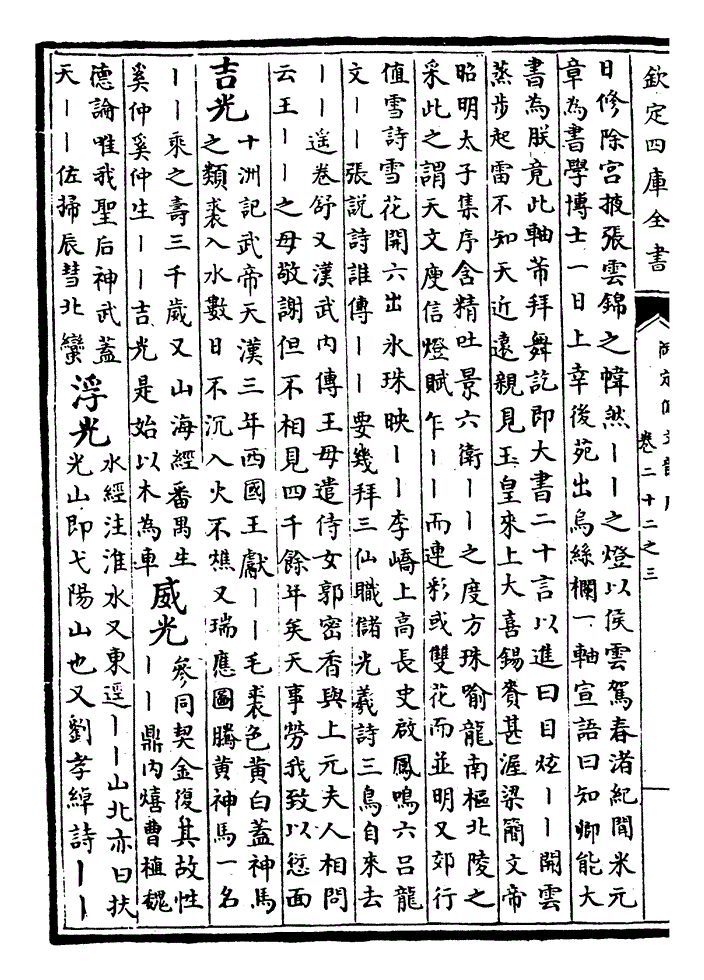 欽定四庫全書
卷二十二之三
日修除宫披張雲錦之幃然丨丨之燈以侯雲駕春渚紀聞米元
章為書學博士一日上幸後苑出烏絲欄一軸宣語曰知卿能大
書為朕竟此軸芾拜舞訖即大書二十言以進曰目炫丨丨開雲
蒸步起雷不知天近遠親見玉皇來上大喜錫賚甚渥梁簡文帝
昭明太子集序含精吐景六衛丨丨之度方珠喻龍南樞北陵之
采此之謂天文庾信燈賦乍丨丨而連彩或雙花而並明又郊行
值雪詩雪花開六出氷珠映丨丨李嶠上高長史啟鳳鳴六吕龍
文丨丨張説詩誰傳丨丨要幾拜三仙職儲光羲詩三鳥自來去
丨丨遥卷舒又漢武内傳王母遣侍女郭密香與上元夫人相問
云王丨丨之母敬謝但不相見四千餘年矣天事勞我致以愆面
吉光
十洲記武帝天漢三年西國王獻丨丨毛裘色黄白蓋神馬
之類裘入水數日不沉入火不燋又瑞應圖騰黄神馬一名
丨丨乘之壽三千歲又山海經番禺生
奚仲奚仲生丨丨吉光是始以木為車
威光
參同契金復其故性
丨丨鼎内熺曹植魏
德論唯我聖后神武蓋
天丨丨佐掃辰彗北蠻
浮光
水經注淮水又東逕丨丨山北亦曰扶
光山即弋陽山也又劉孝綽詩丨丨